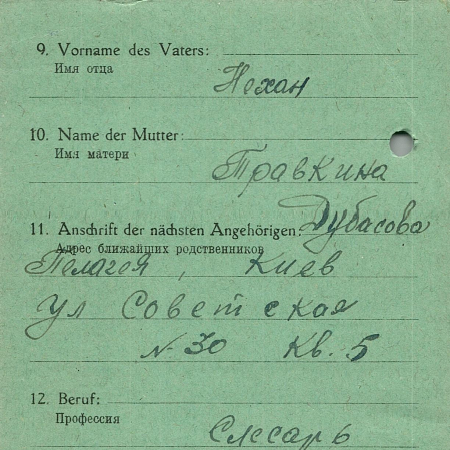 9. Vorname des Vaters:
Имя отца
Нехан
10. Name der Mutter:
Имя матери
Травкина
11. Anschrift der nächsten Angehörigen: Дубасова
Адрес ближайших родственников
Пелагея, Киев
ул Советская
№ 30 Кв. 5
12. Beruf:
Профессия
Слесарь